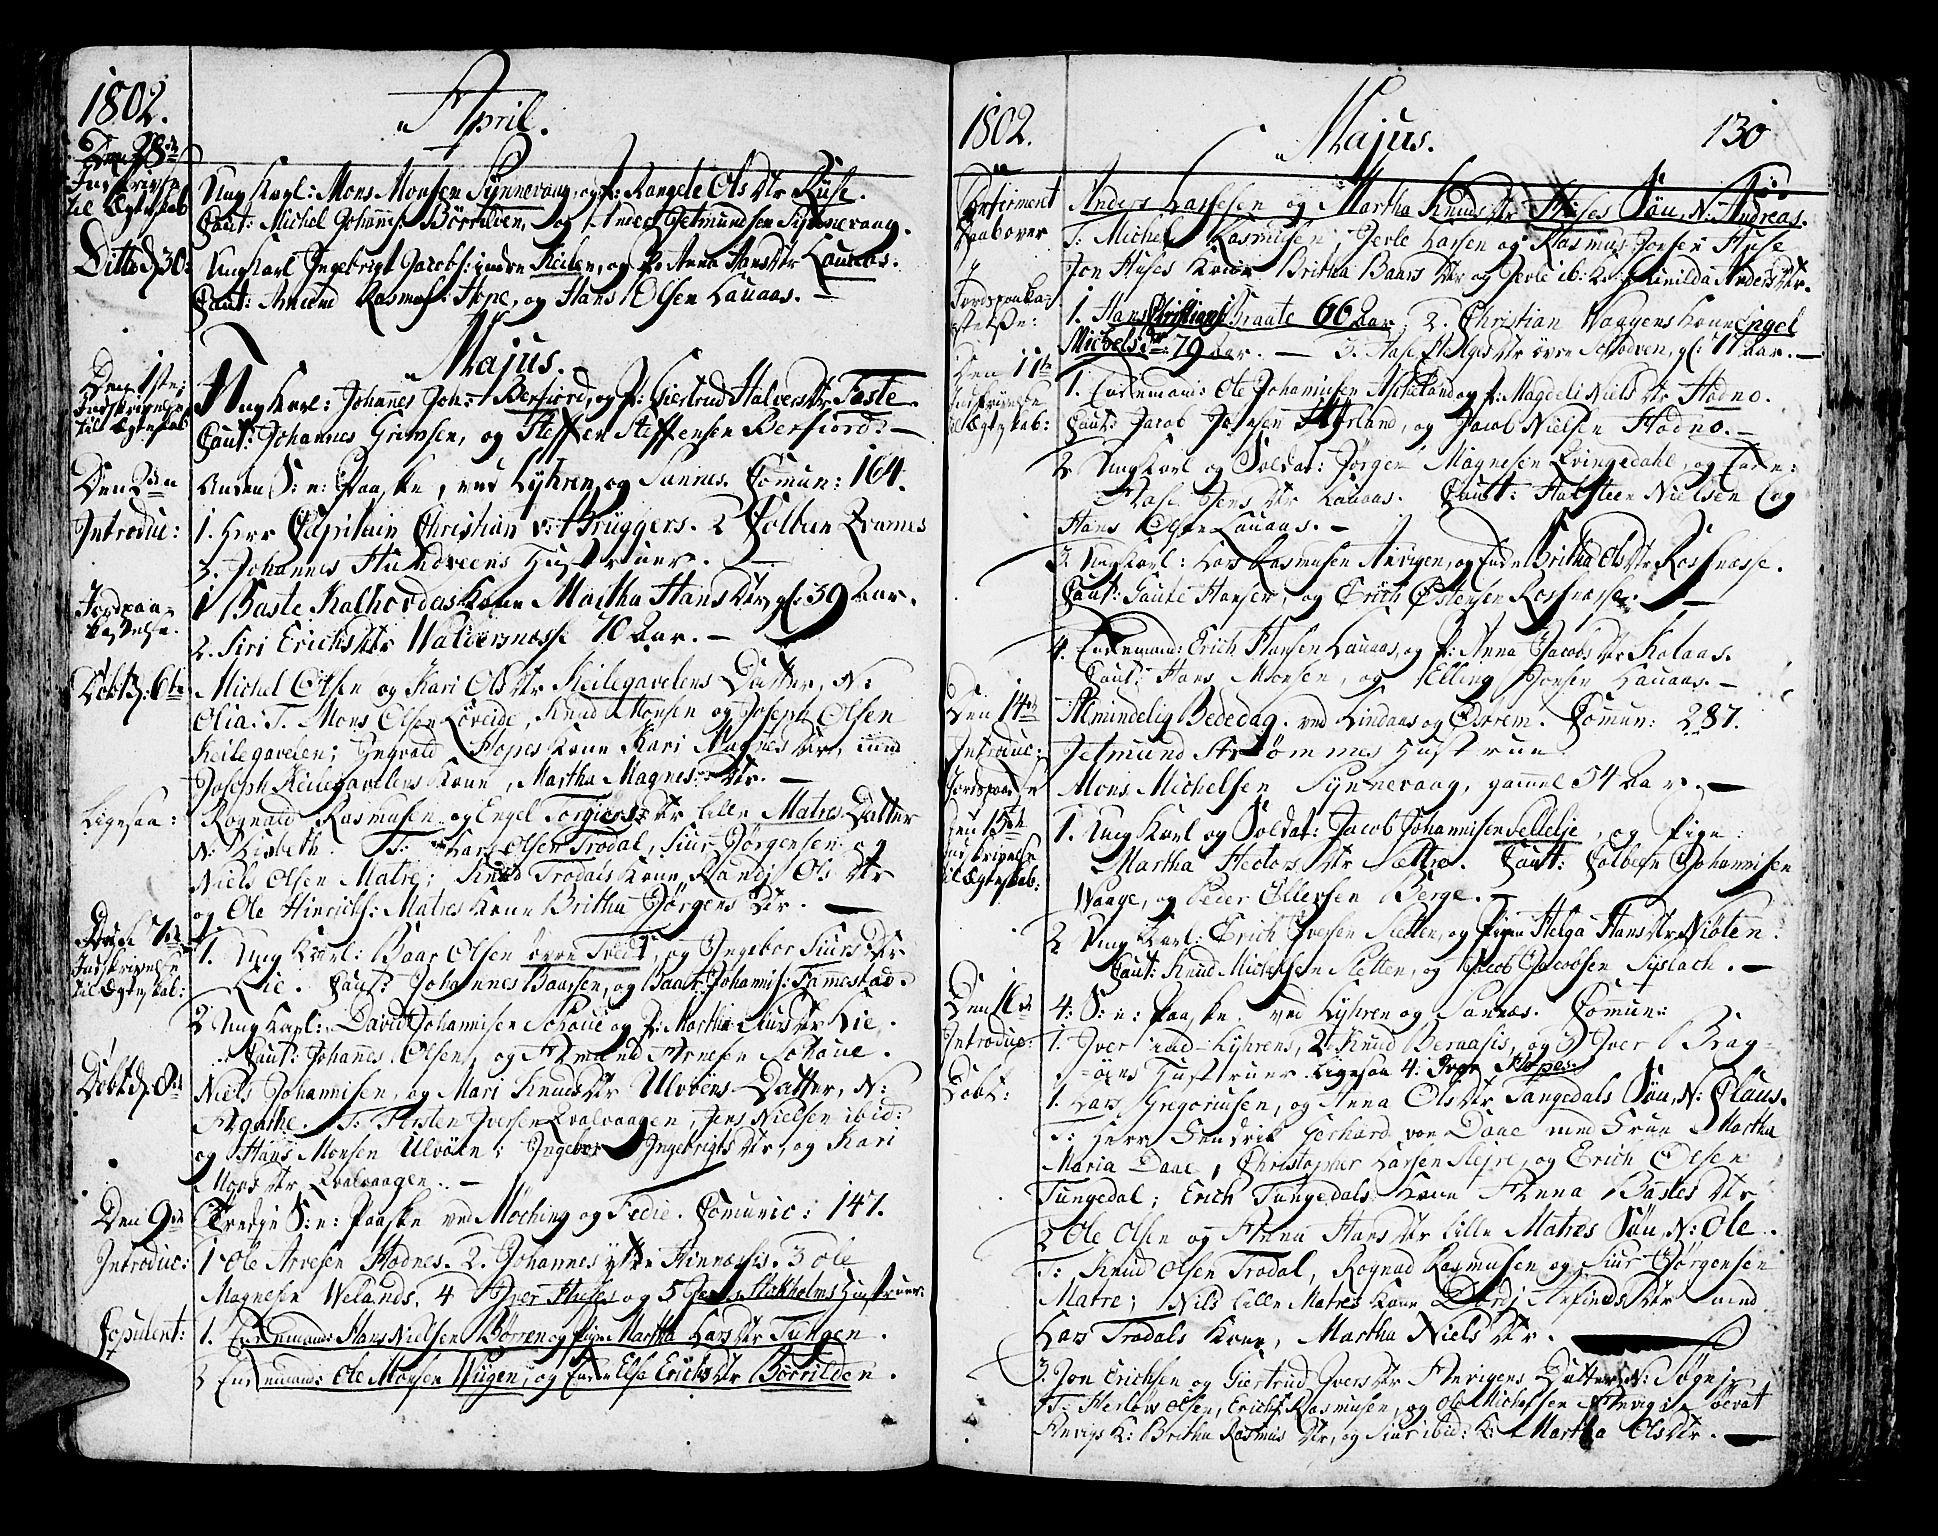 1802.
April.
Den 28de
Indskrivne til Ægteskab
Ung Karl: Mons Monsen Synnevaag, og P: Rangele Olsdtr Ruse.
Caut: Michel Johannes: Børrilden, og Amund Getmundsen Synnevaag.
Ditto d 30:
Ung Karl Ingebrigt Jacobs: indre Keilen, og P: Anna Hansdtr Lauaas.
Caut: Amund Rasmus: Hope, og Hans Olsen Lauaas. —
Majus.
Den 1ste:
Indskrivne til Ægteskab
Ung Karl: Johannes Joh: Berfiord, og P: Giertrud Halversdtr Faste
Caut: Johannes Grimsen, og Steffen Steffensen Berfiord. —
Den 2den
Anden S: e: Paaske, ved Lyhren og Sannes. Comun: 164.
Introduc:
1. Herr Capitain Christian v: Brüggers. 2 Colben Qvames
3. Johannes Hundveens Hustruer. —
Jordpaakastelse.
1 Baste Kalhovdes Kone Martha Hansdtr, gl: 39 Aar.
2. Siri Erichsdtr Waldersnesse 70 Aar. —
Døbt d: 6te
Michel Olsen og Kari Olsdtr Keilegavelens Datter, N:
Olia: T: Mons Olsen Løveide, Knud Monsen og Joseph Olsen
Keilegavelen; Ingvald Hopes Kone Kari Magnesdtr, med
Joseph Keilegavelens Kone, Martha Magnesdtr. —
Ligesaa:
Rognald Rasmusen og Engel Torgiersdtr lille Matres Datter
N: Lisbeth. T: Lars Olsen Trodal, Siur Jørgensen og
Niels Olsen Matre; Knud Trodals Kone Randi Olsdtr
og Ole Hinrichs: Matres Kone Britha Jørgensdtr. —
Den 7de
Indskrivelse til Ægteskab:
1. Ung Karl: Baar Olsen øvre Tvedt, og Ingebor Siursdtr
Lie. Caut: Johannes Baarsen, og Baar Johannis: Fammestad.
2 Ung Karl: David Johannisen Schoue og P: Martha Siursdtr Lie,
Caut: Johannes Olsen, og Amund Arnesen Schoue.
Døbt d: 8de
Niels Johannisen, og Mari Knudsdtr Ulvøens Datter, N:
Agathe. T: Torsten Iversen Qvalvaagen, Jens Nielsen ibid:
og Hans Monsen Ulvøen; Ingebor Ingebrigtsdtr, og Kari
Monsdtr Qvalvaagen. —
Den 9de
Tredje S: e: Paaske ved Møching og Fedie. Comunic: 147.
Introduc:
1 Ole Arvesen Hodnes. 2. Johannes ytre Hinnesis. 3 Ole
Magnesen Welands. 4 Iver Huses og 5 Jens Stokholms Hustruer.
Copulent:
1. Enkemand Hans Nielsen Børren og Pigen Martha Larsdtr Tungen.
2 Enkemand: Ole Monsen Wiigen, og Enken Else Erichsdtr Børrilden.
1802.
Majus.
130
Confirment Daab over
Anders Lassesen og Martha Knudsdtr Huses Søn, N: Andreas.
T: Michel Rasmusen, Jerle Larsen og Rasmus Jonsen Huse
Jon Huses Kone Britha Baarsdtr og Jerle ib: K: Gunilda Andersdtr.
Jordpaakastelse:
1. Hans Christians: Straate 66 Aar, 2. Christian Waagens Kone Engel
Michelsdtr: 79 Aar. — 3. Aase Helgesdtr øvre Schodven, gl: 77 Aar. —
Den 11te
Indskrivelse til Ægteskab:
1. Enkemand: Ole Johannisen Mekeland og P: Magdeli Nielsdtr Hodno.
Caut: Jacob Jansen Hopland, og Jacob Nielsen Hodno. —
2 Ung Karl og Soldat: Jørgen Magnesen Qvingedahl, og Enke:
Aase Jensdtr Lauaas. Caut: Halsteen Nielsen Eeg
Hans Olsen Lauaas. —
3. Ung Karl: Lars Rasmusen Anvigen, og Enken Britha Olsdtr Rosnæsse.
Caut: Gaute Hansen, og Erich Østensen Rosnæsse. —
4. Enkemand: Erich Hansen Lauaas, og P: Anna Jacobsdtr Kolaas.
Caut: Hans Monsen, og Elling Jonsen Lauaas. —
Den 14de
Almindelig Bededag. ved Lindaas og Ostrem. Comun: 287.
Introduc:
Jetmund Askømmes Hustrue
Jordpaa
Mons Michelsen Synnevaag, gammel 54 Aar. —
Den 15de
Indskrivelse til Ægteskab:
1. Ung Karl og Soldat: Jacob Johannisen Sellelie, og Pige:
Martha Hectorsdtr Sættre. Caut: Colben Johannisen
Waage, og Peder Ellersen Berge. —
2 Ung Karl: Erich Iversen Sletten, og Pigen Helga Hansdtr Niøten.
Caut: Knud Michelsen Sletten, og Jacob Jacobsen Syslach. —
Den 16de
4: S: e: Paaske. ved Lyhren og Sannes. Comun:
Introduc:
1. Iver ned-Lyhrens, 2. Knud Bernasis, og 3 Iver Brag-
øens Hustruer. Ligesaa 4. Iver Hopes.
Døbt:
1. Lars Gregoriusen, og Anna Olsdtr Tangedals Søn, N: Claus.
T: Herr Hendrik Gerhard von Daae med Frue Martha
Maria Daae, Christopher Larsen Slejre, og Erich Olsen
Tungedal; Erich Tungedals Kone Anna Bastesdtr
2 Ole Olsen og Anna Hansdtr lille Matres Søn, N: Ole.
T: Knud Olsen Trodal, Rognad Rasmusen og Siur Jørgensen
Matre; Nils lille Matres Kone Dordi Arfindsdtr med
Lars Trodals Kone, Martha Nielsdtr. —
3. Jon Erichsen og Giertrud Iversdtr Anvigens Datter, N: Søgni
T: Herlow Olsen, Erich Rasmusen, og Ole Michelsen Anvig; Solvat
Anvigs K: Britha Rasmusdtr, og Siur ibid: K: Martha Olsdtr. —